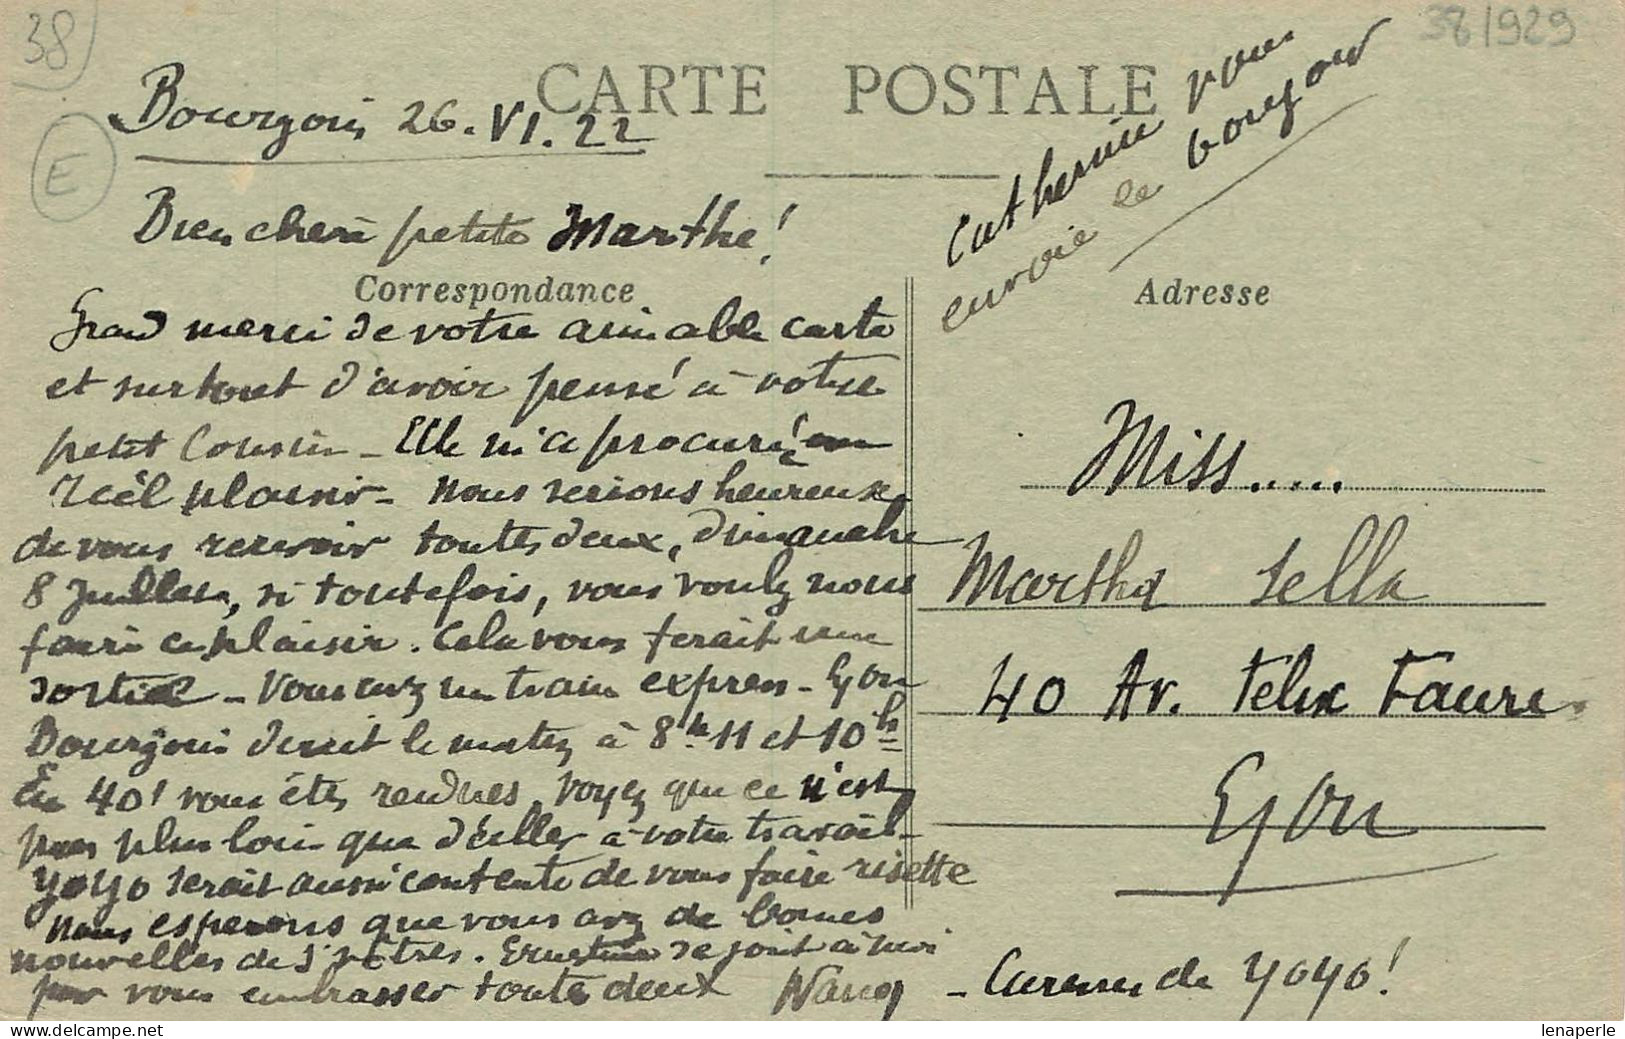 38
38/929
CARTE POSTALE
Bourgoin 26.VI.22
E
Catherine vous
envoie le bonjour
Bien chère petite Marthe!
Correspondance
Adresse
Grand merci de votre aimable carte
et surtout d'avoir pensé à votre
petit Cousin - Elle m'a procuré un
réel plaisir - Nous serions heureux
de vous recevoir toutes deux, dimanche
8 Juillet, si toutefois, vous voulez nous
faire ce plaisir. Cela vous ferait une
sortie - Vous avez un train express - Lyon
Bourgoin durant le matin à 8h 11 et 10h
En 40' vous êtes rendues. Voyez que ce n'est
pas plus loin que d'aller à votre travail -
Yoyo serait aussi contente de vous faire risette
Nous esperons que vous avez de bonnes
nouvelles de vôtres. Ernestine se joint à moi
pour vous embrasser toutes deux
Miss.....
Martha Sella
40 Av. Félix Faure.
Lyon
- Caresses de Yoyo!
lenaperle